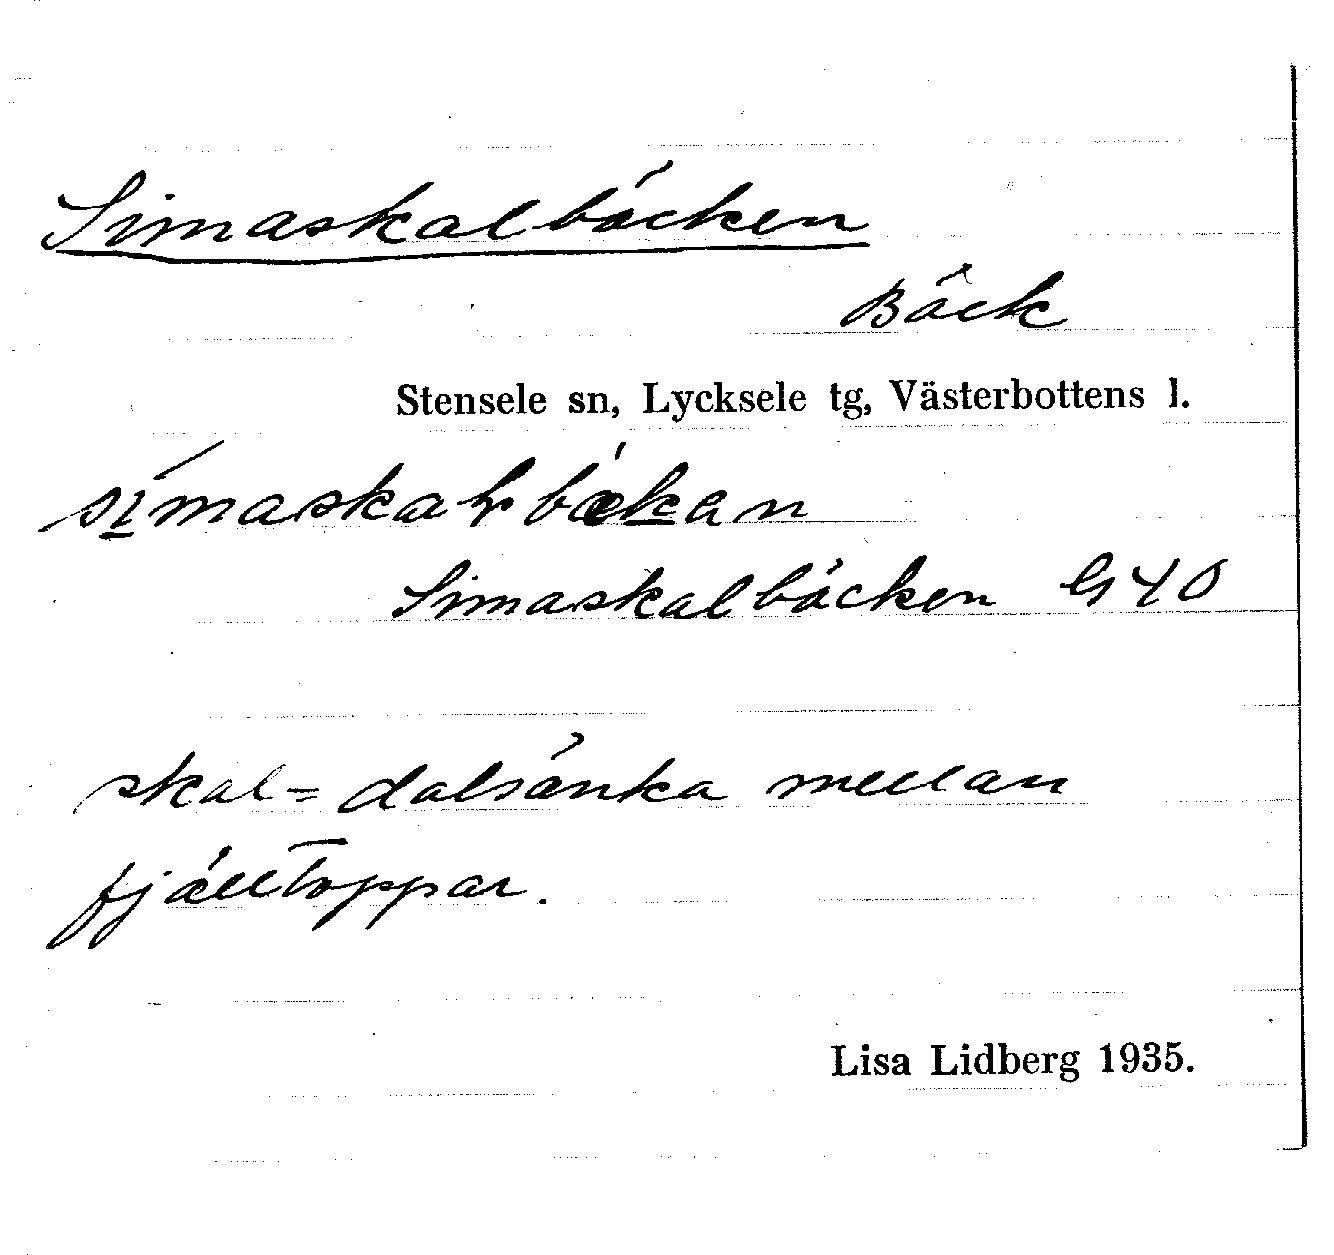 Simaskalbäcken
Bäck
Stensele sn, Lycksele tg, Västerbottens l.
Simaskalbäcken G40
skal = dalsänka mellan
fjälltoppar.
Lisa Lidberg 1935.